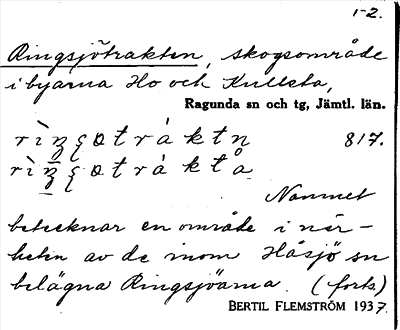 1-2.
Ringsjötrakten, skogsområde
i byarna Ho och Kullsta,
Ragunda sn och tg, Jämtl. län.
817.
Namnet
betecknar en område i när-
heten av de inom Håsjö sn
belägna Ringsjöarna. (forts.)
BERTIL FLEMSTRÖM 1937.